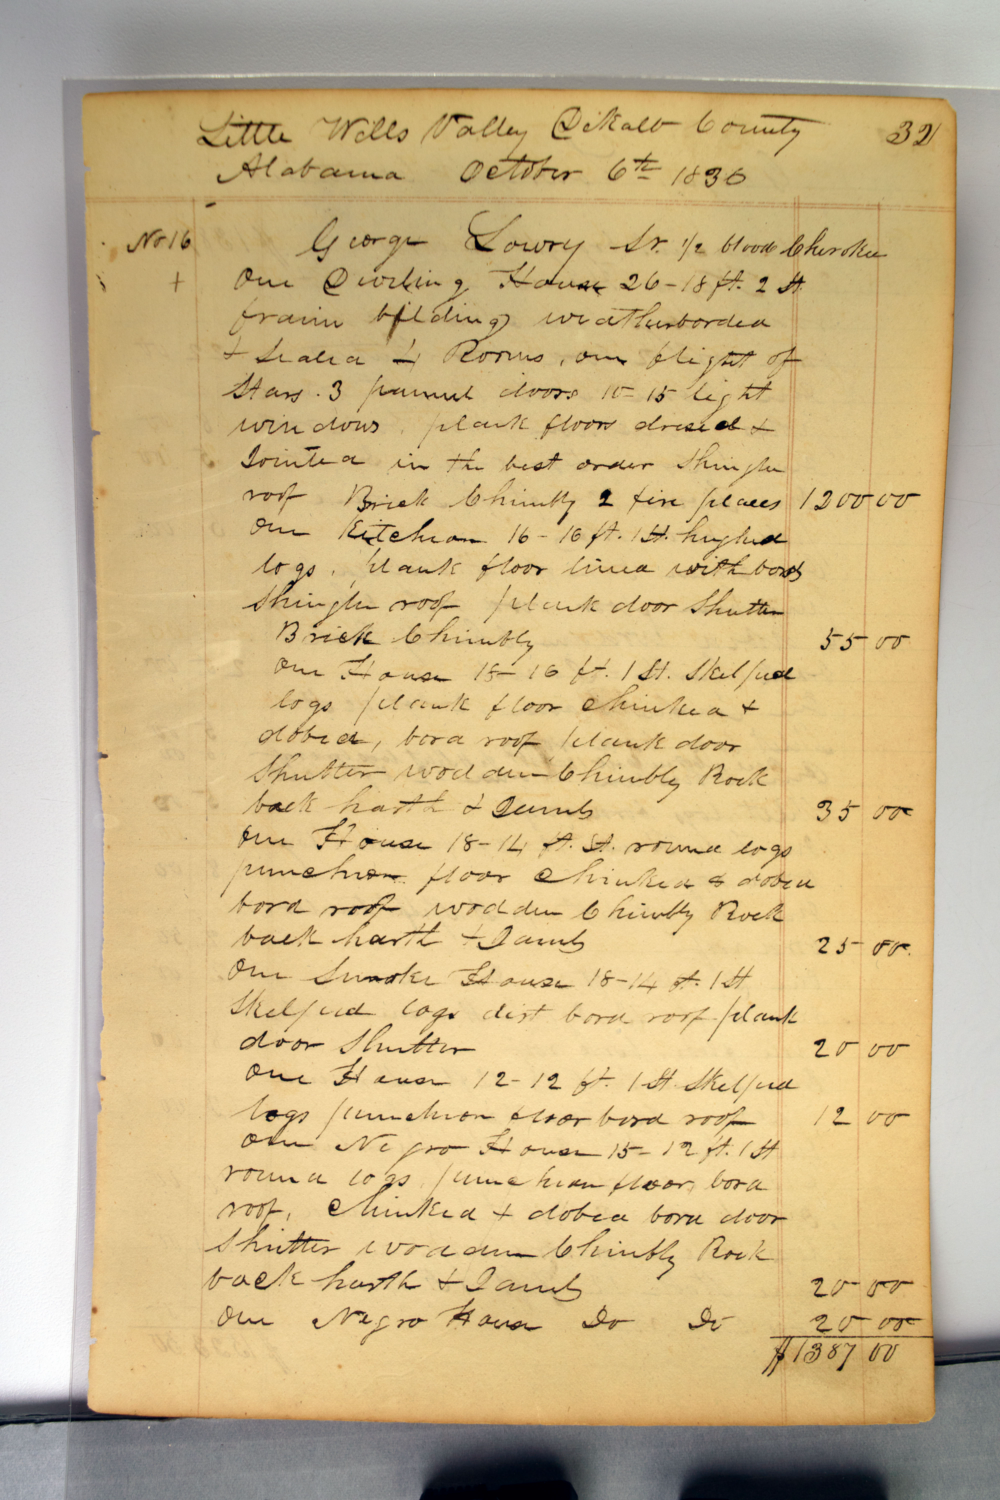 Little Wills Valley DeKalb County 32
Alabama October 6th 1836
No 16 George Lowry Sr. 1/2 blood Cherokee
+ One Dwelling House 26-18 ft. 2 St.
fraim bilding weatherborded
& Sealed 4 Rooms, one flight of
Stars. 3 pannel doors 10-15 light
windows. plank floors dresed &
Jointed in the best order Shingle
roof Brick Chimbly 2 fire places 1200 00
One Kitchean 16-16 ft. 1 St. hughed
logs, plank floor lined with bords
Shingle roof plank door Shutter
Brick Chimbly 55 00
One House 18-16 ft. 1 St. Skelped
logs plank floor chinked &
dobed, bord roof plank door
Shutter wodden Chimbly Rock
back harth & Jambs 35 00
One House 18-14 ft. St. round logs
punchion floor chinked & dobed
bord roof wodden Chimbly Rock
back harth & Jambs 25 00.
One Smoke House 18-14 ft. 1 St
Skelped logs dirt bord roof plank
door Shutter 20 00
One House 12-12 ft. 1 St Skelped
logs punchion floor bord roof 12 00
One Negro House 15-12 ft. 1 St
round logs punchion floor, bord
roof, chinked & dobed bord door
Shutter wodden Chimbly Rock
back harth & Jambs 20 00
One Negro House Do Do 20 00
$1387 00